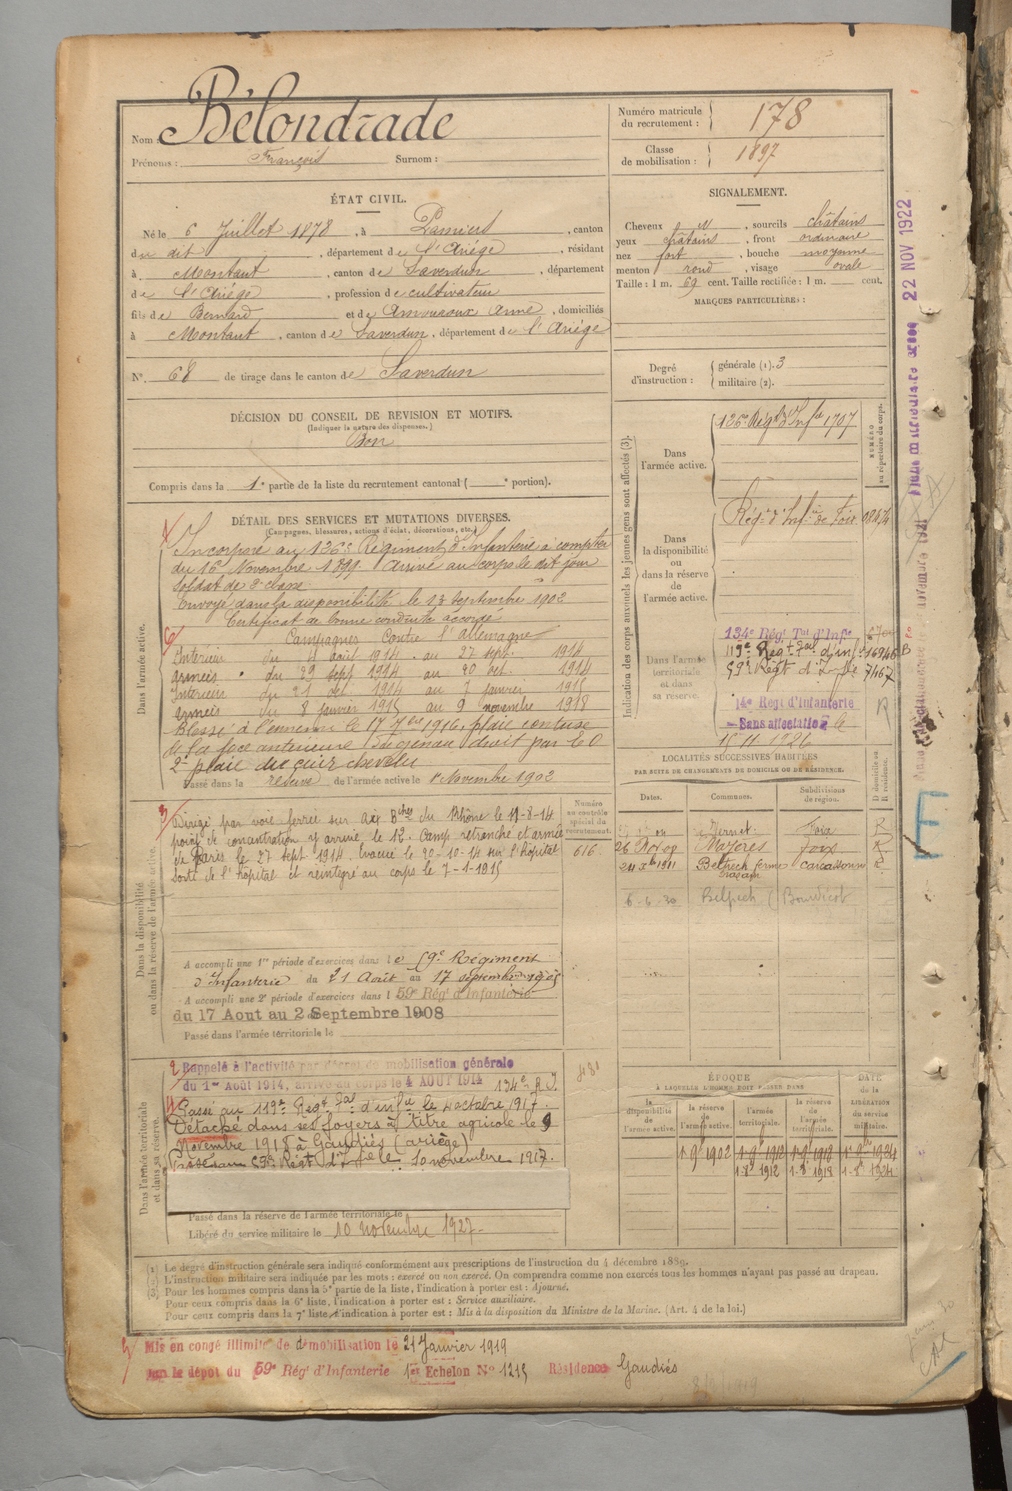 Nom : Bélondrade
Prénoms : François Surnom :
Numéro matricule du recrutement : 178
Classe de mobilisation : 1897
ÉTAT CIVIL.
Né le 6 Juillet 1878, à Pamiers, canton
du dit, département de l'Ariège, résidant
à Montaut, canton de Saverdun, département
de l'Ariège, profession de cultivateur
fils de Bernard et de Amouroux Anne, domiciliés
à Montaut, canton de Saverdun, département de l'Ariège
N° 68 de tirage dans le canton de Saverdun
SIGNALEMENT.
Cheveux , sourcils châtains
yeux châtains, front ordinaire
nez fort, bouche moyenne
menton rond, visage ovale
Taille : 1 m. 69 cent. Taille rectifiée : 1 m. cent.
MARQUES PARTICULIÈRES :
Degré d'instruction : générale (1). 3
militaire (2).
DÉCISION DU CONSEIL DE REVISION ET MOTIFS.
(Indiquer la nature des dispenses.)
Bon
Compris dans la 1e partie de la liste du recrutement cantonal ( e portion).
DÉTAIL DES SERVICES ET MUTATIONS DIVERSES.
(Campagnes, blessures, actions d'éclat, décorations, etc.)
Dans l'armée active.
Incorporé au 126e Régiment d'Infanterie à compter
du 16 Novembre 1899. Arrivé au corps le dit jour
soldat de 2e classe
Envoyé dans la disponibilité le 13 Septembre 1902
Certificat de bonne conduite accordé
Campagnes Contre l'Allemagne
Intérieur du 4 août 1914 au 27 sept. 1914
armées du 28 sept 1914 au 20 oct. 1914
Intérieur du 21 oct. 1914 au 7 janvier 1915
armées du 8 janvier 1915 au 9 novembre 1918
Blessé à l'ennemi le 17 7bre 1916, plaie contuse
de la face antérieure du genou droit par E O
2e plaie du cuir chevelu
Passé dans la réserve de l'armée active le 1 Novembre 1902
Indication des corps auxquels les jeunes gens sont affectés (3).
NUMÉRO au répertoire du corps.
Dans l'armée active.
126e Régt d'Infie 1707
Dans la disponibilité ou dans la réserve de l'armée active.
Régt d'Infie de Foix
Dans l'armée territoriale et dans sa réserve.
134e Régt Tal d'Infie
119e Régt Tal d'inf. 16948 B
59e Régt d'Infie 7467
14e Regt d'Infanterie
Sans affectation
15-11-1926
LOCALITÉS SUCCESSIVES HABITÉES
PAR SUITE DE CHANGEMENTS DE DOMICILE OU DE RÉSIDENCE.
Dates. Communes. Subdivisions de région. D domicile ou R résidence.
Vernet Foix R
26 Mazères Foix R
1911 Belpech ferme Carcassonne R
6-6-30 Belpech
Dans la disponibilité ou dans la réserve de l'armée active.
Numéro au contrôle spécial du recrutement.
616
Dirigé par voie ferrée sur Aix Bches du Rhône le 11-8-14
point de concentration y arrivé le 12. Camp retranché et armée
de Paris le 27 sept 1914. Evacué le 20-10-14 sur l'hôpital
sorti de l'hôpital et réintégré au corps le 7-1-1915
A accompli une 1re période d'exercices dans le 59e Régiment
d'Infanterie du 21 Août au 17 septembre 1905
A accompli une 2e période d'exercices dans l 59e Régt d'Infanterie
du 17 Aout au 2 Septembre 1908
Passé dans l'armée territoriale le
Dans l'armée territoriale et dans sa réserve.
Rappelé à l'activité par décret de mobilisation générale
du 1er Août 1914, arrivé au corps le 4 AOUT 1914 134e R.I.
Passé au 119e Régt Tal d'infie le 4 octobre 1917.
Détaché dans ses foyers à titre agricole le 9
Novembre 1918 à Gaudiés (ariège)
Passé au 59e Régt d'Ifie le 10 novembre 1917.
Passé dans la réserve de l'armée territoriale le
Libéré du service militaire le 10 novembre 1927
ÉPOQUE
À LAQUELLE L'HOMME DOIT PASSER DANS
DATE de la LIBÉRATION du service militaire.
la disponibilité de l'armée active. la réserve de l'armée active. l'armée territoriale. la réserve de l'armée territoriale.
1 9bre 1902 1-9bre 1912 1-9bre 1918 1-9bre 1924
1-8bre 1912 1-8bre 1918 1-8bre 1924
(1) Le degré d'instruction générale sera indiqué conformément aux prescriptions de l'instruction du 4 décembre 1889.
(2) L'instruction militaire sera indiquée par les mots : exercé ou non exercé. On comprendra comme non exercés tous les hommes n'ayant pas passé au drapeau.
(3) Pour les hommes compris dans la 5e partie de la liste, l'indication à porter est : Ajourné.
Pour ceux compris dans la 6e liste, l'indication à porter est : Service auxiliaire.
Pour ceux compris dans la 7e liste, l'indication à porter est : Mis à la disposition du Ministre de la Marine. (Art. 4 de la loi.)
Mis en congé illimité de démobilisation le 21 Janvier 1919
par le dépôt du 59e Régt d'Infanterie 1er Echelon N° 1215 Résidence Gaudiés
22 NOV 1922